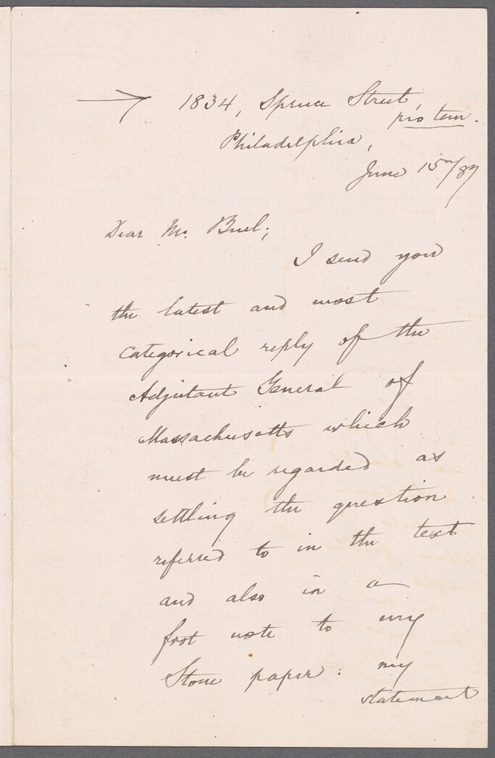 → 1834, Spruce Street,
pro tem.
Philadelphia,
June 15th/87
Dear Mr. Buel;
I send you
the latest and most
categorical reply of the
Adjutant General of
Massachusetts which
must be regarded as
settling the question
referred to in the text
and also in a
foot note to my
Stone paper. my
statement